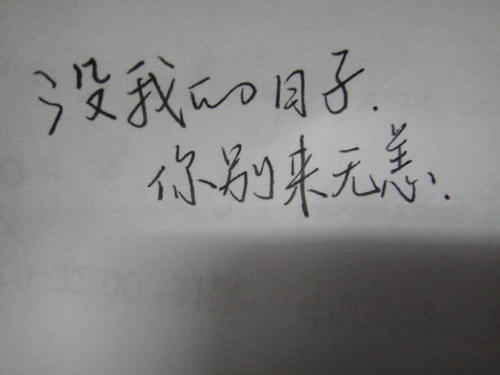 没我的日子.
你别来无恙.